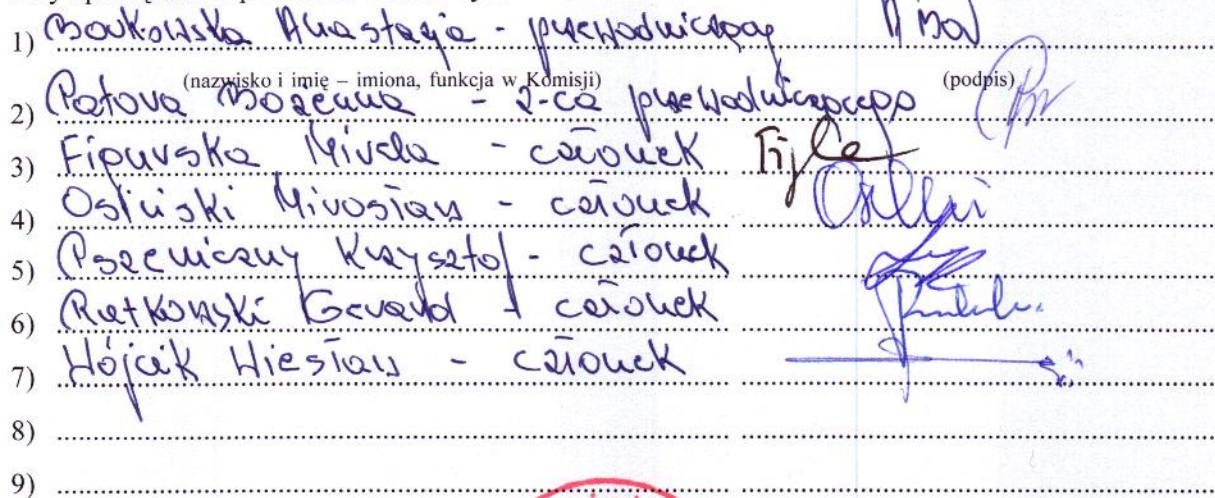 1) Borkowska Anastazja - przewodnicząca
(nazwisko i imię – imiona, funkcja w Komisji) (podpis)
2) Patora Bożenna - z-ca przewodniczącego
3) Figurska Mirela - członek
4) Osiński Mirosław - członek
5) Pszeniczny Krzysztof - członek
6) Rutkowski Gerard - członek
7) Wójcik Wiesław - członek
8)
9)